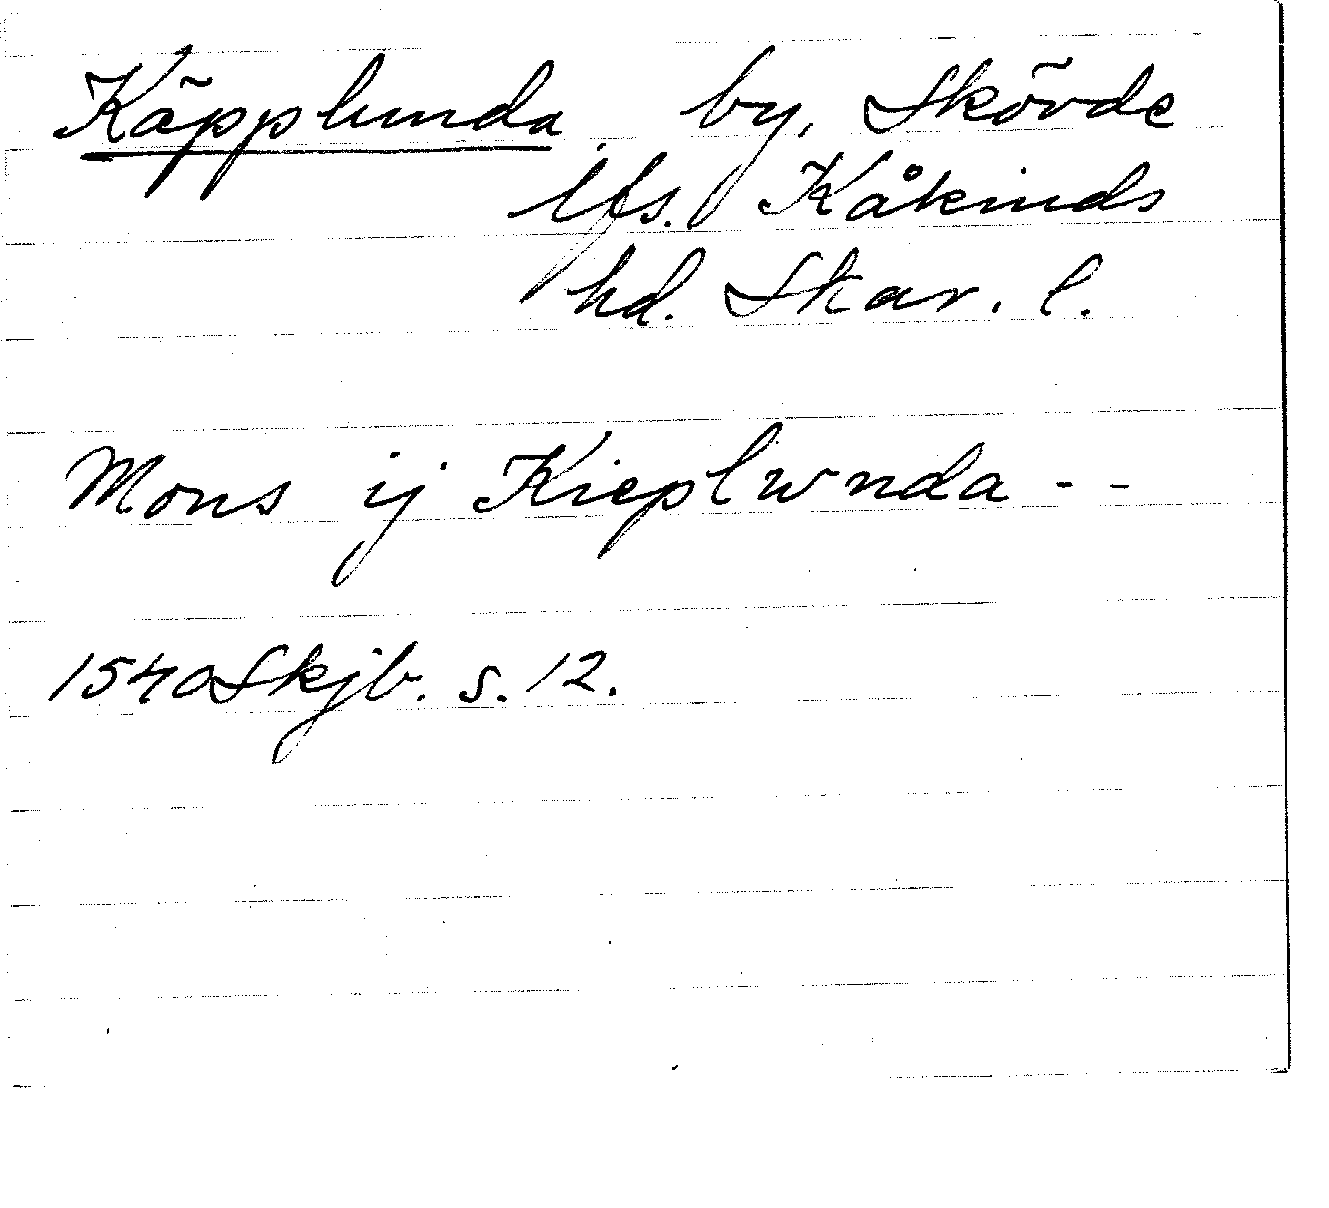 Käpplunda by, Skövde
lfs. Kåkinds
hd. Skar. l.
Mons ij Kieplwnda - -
1540 Skjb. s. 12.